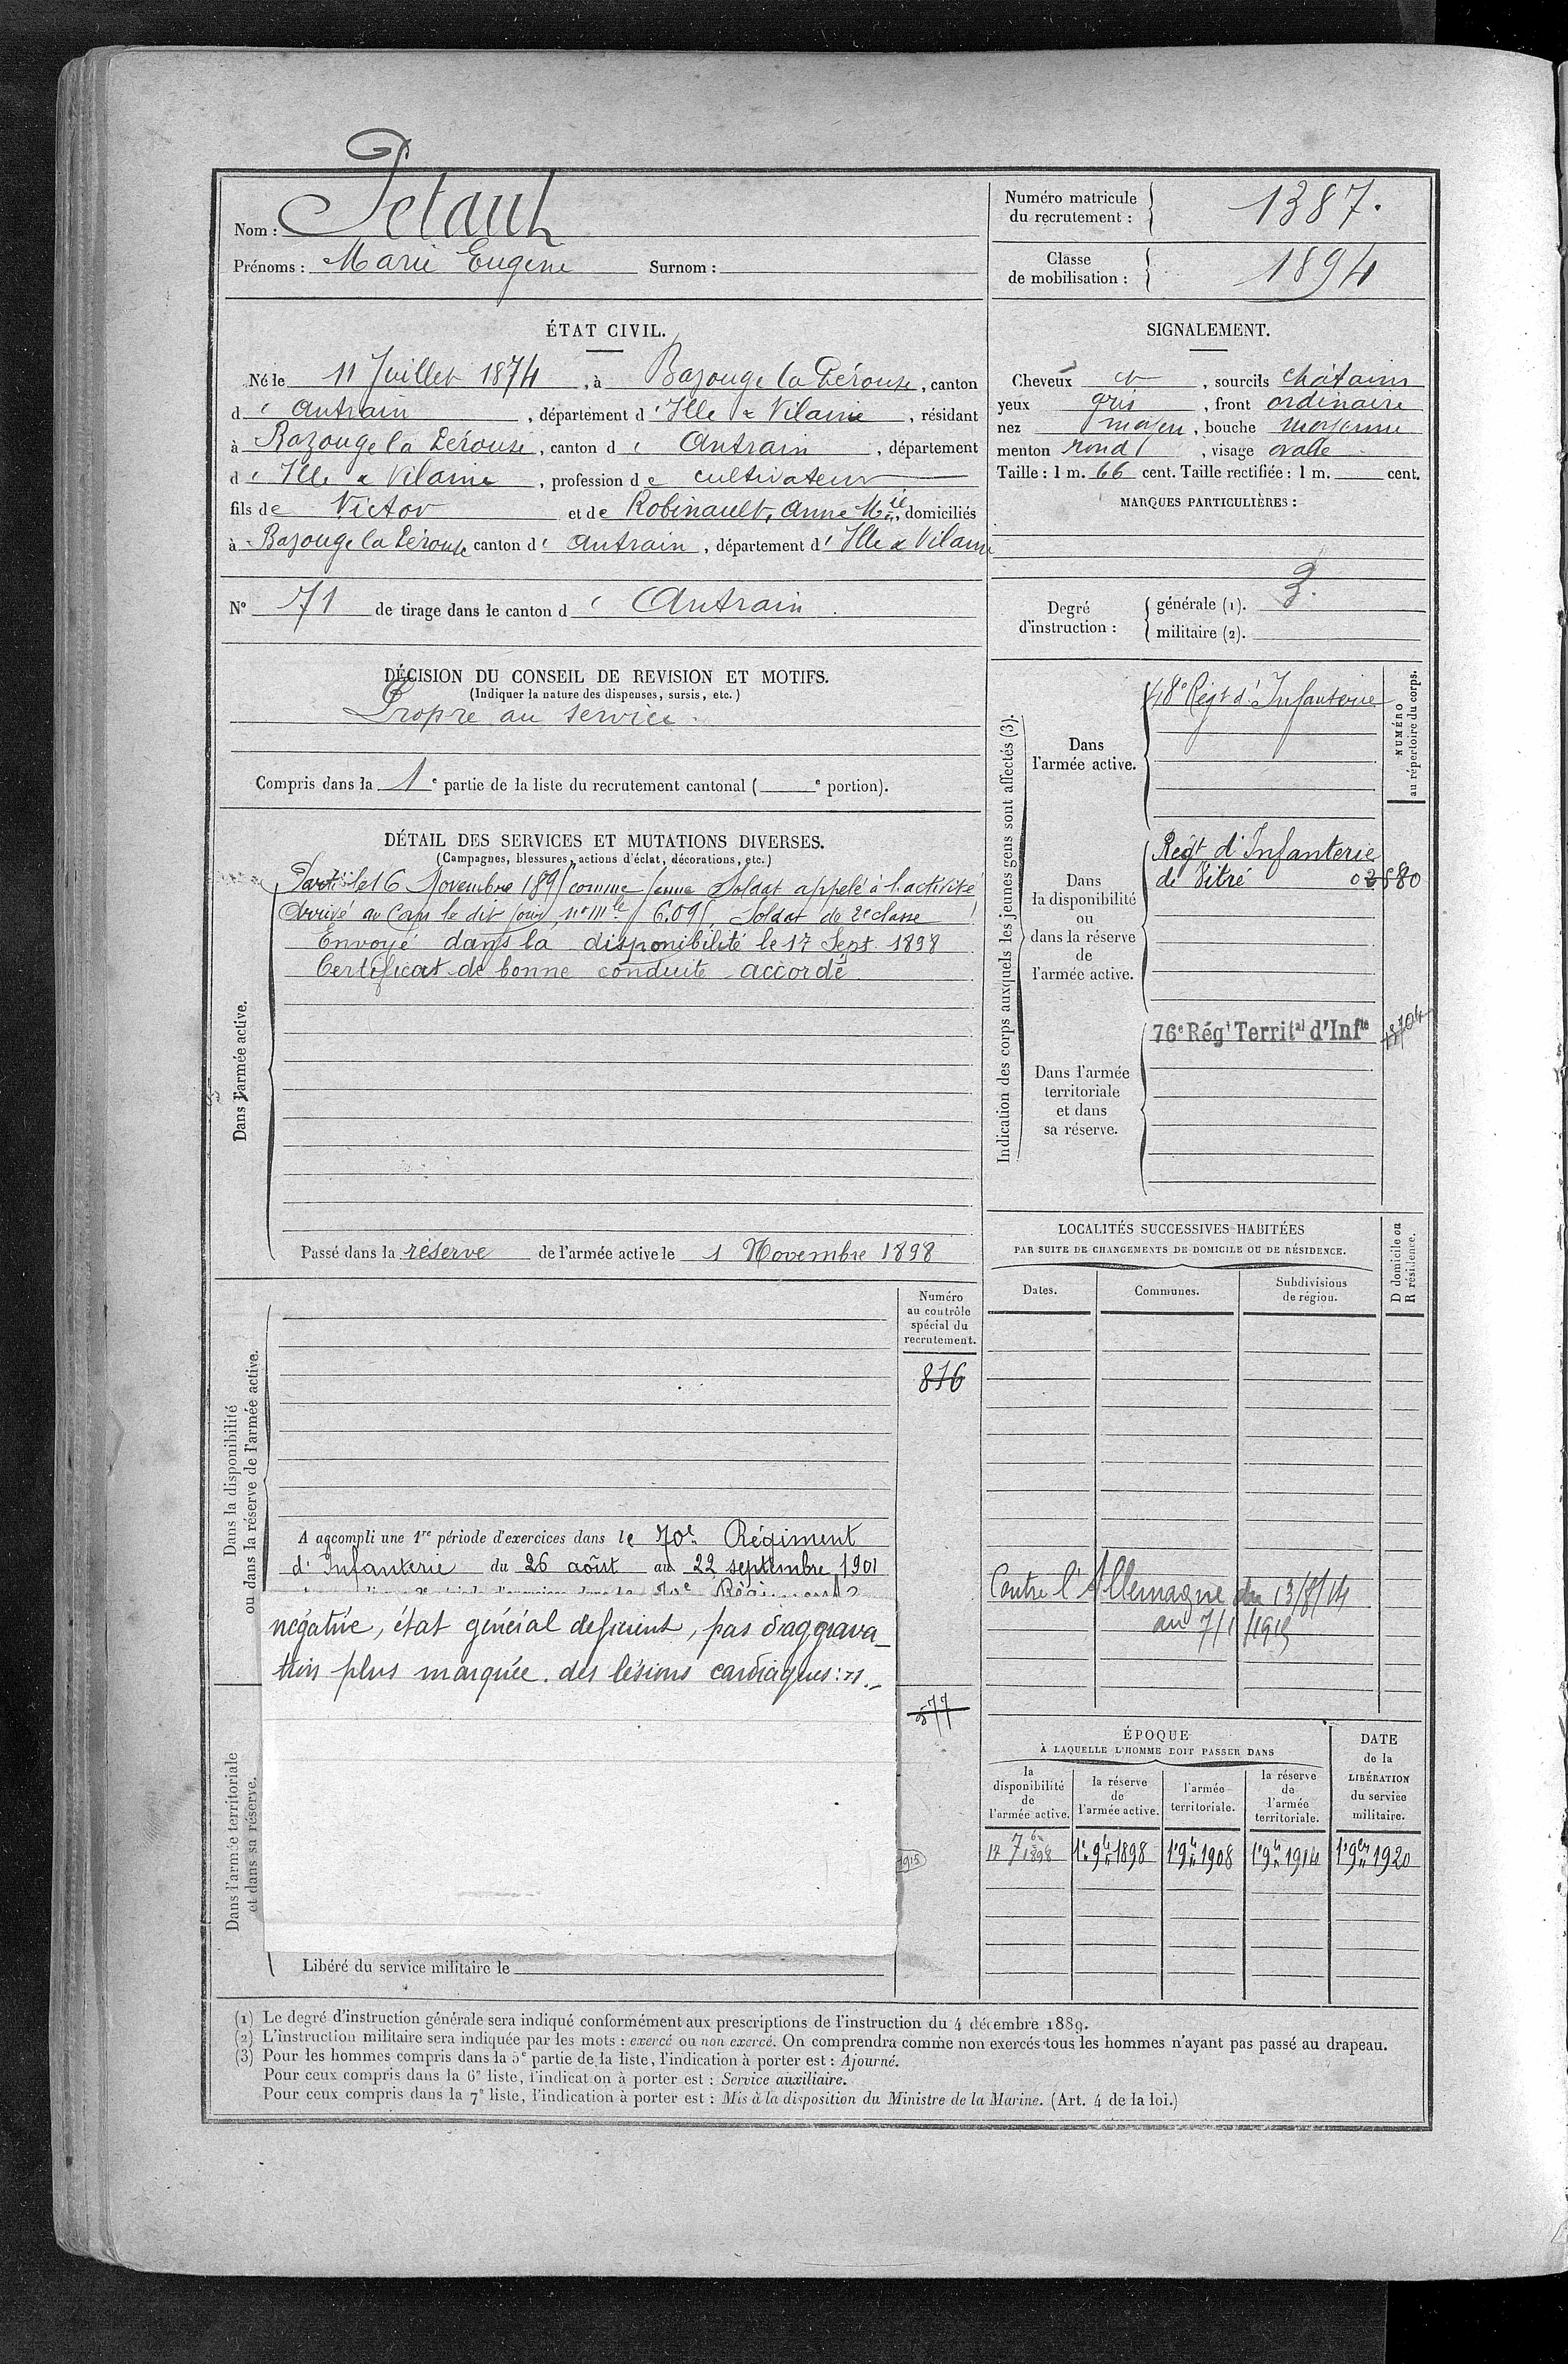 Nom : Petault
Prénoms : Marie Eugène Surnom :
Numéro matricule du recrutement : 1387.
Classe de mobilisation : 1894
ÉTAT CIVIL.
Né le 11 Juillet 1874, à Bazouge la Pérouse, canton
d' Antrain, département d' Ille & Vilaine, résidant
à Bazouge la Pérouse, canton d' Antrain, département
d' Ille & Vilaine, profession de cultivateur
fils de Victor et de Robinault, Anne Mie, domiciliés
à Bazouge la Pérouse canton d' Antrain, département d' Ille & Vilaine
N° 71 de tirage dans le canton d' Antrain.
SIGNALEMENT.
Cheveux et, sourcils chatains
yeux gris, front ordinaire
nez moyen, bouche moyenne
menton rond, visage ovale
Taille : 1 m. 66 cent. Taille rectifiée : 1 m. cent.
MARQUES PARTICULIÈRES :
Degré d'instruction : générale (1). 3.
militaire (2).
DÉCISION DU CONSEIL DE REVISION ET MOTIFS.
(Indiquer la nature des dispenses, sursis, etc.)
Propre au service.
Compris dans la 1e partie de la liste du recrutement cantonal ( e portion).
DÉTAIL DES SERVICES ET MUTATIONS DIVERSES.
(Campagnes, blessures, actions d'éclat, décorations, etc.)
Dans l'armée active.
Parti le 16 Novembre 1895 comme jeune Soldat appelé à l'activité
Arrivé au Corps le dit jour, no mle 6.095 Soldat de 2e classe
Envoyé dans la disponibilité le 17 Sept. 1898
Certificat de bonne conduite accordé
Passé dans la réserve de l'armée active le 1 Novembre 1898
Indication des corps auxquels les jeunes gens sont affectés (3).
NUMÉRO au répertoire du corps.
Dans l'armée active.
48e Régt d'Infanterie
Dans la disponibilité ou dans la réserve de l'armée active.
Régt d'Infanterie
de Vitré
Dans l'armée territoriale et dans sa réserve.
76e Régt Territal d'Infie
LOCALITÉS SUCCESSIVES HABITÉES
PAR SUITE DE CHANGEMENTS DE DOMICILE OU DE RÉSIDENCE.
Dates. Communes. Subdivisions de région. D domicile ou R résidence.
Contre l'Allemagne du 13/8/14
au 7/1/1919
Dans la disponibilité ou dans la réserve de l'armée active.
Numéro au contrôle spécial du recrutement.
816
A accompli une 1re période d'exercices dans le 70e Régiment
d'Infanterie du 26 août au 22 septembre 1901
négative, état général déficient, pas d'aggrava-
tion plus marquée des lésions cardiaques :"._
577
1915
Dans l'armée territoriale et dans sa réserve.
Libéré du service militaire le
ÉPOQUE
À LAQUELLE L'HOMME DOIT PASSER DANS
la disponibilité de l'armée active.
la réserve de l'armée active.
l'armée territoriale.
la réserve de l'armée territoriale.
DATE de la LIBÉRATION du service militaire.
17 7bre 1898 1er 9bre 1898 1er 9bre 1908 1er 9bre 1914 1er 9bre 1920
(1) Le degré d'instruction générale sera indiqué conformément aux prescriptions de l'instruction du 4 décembre 1889.
(2) L'instruction militaire sera indiquée par les mots : exercé ou non exercé. On comprendra comme non exercés tous les hommes n'ayant pas passé au drapeau.
(3) Pour les hommes compris dans la 5e partie de la liste, l'indication à porter est : Ajourné.
Pour ceux compris dans la 6e liste, l'indication à porter est : Service auxiliaire.
Pour ceux compris dans la 7e liste, l'indication à porter est : Mis à la disposition du Ministre de la Marine. (Art. 4 de la loi.)